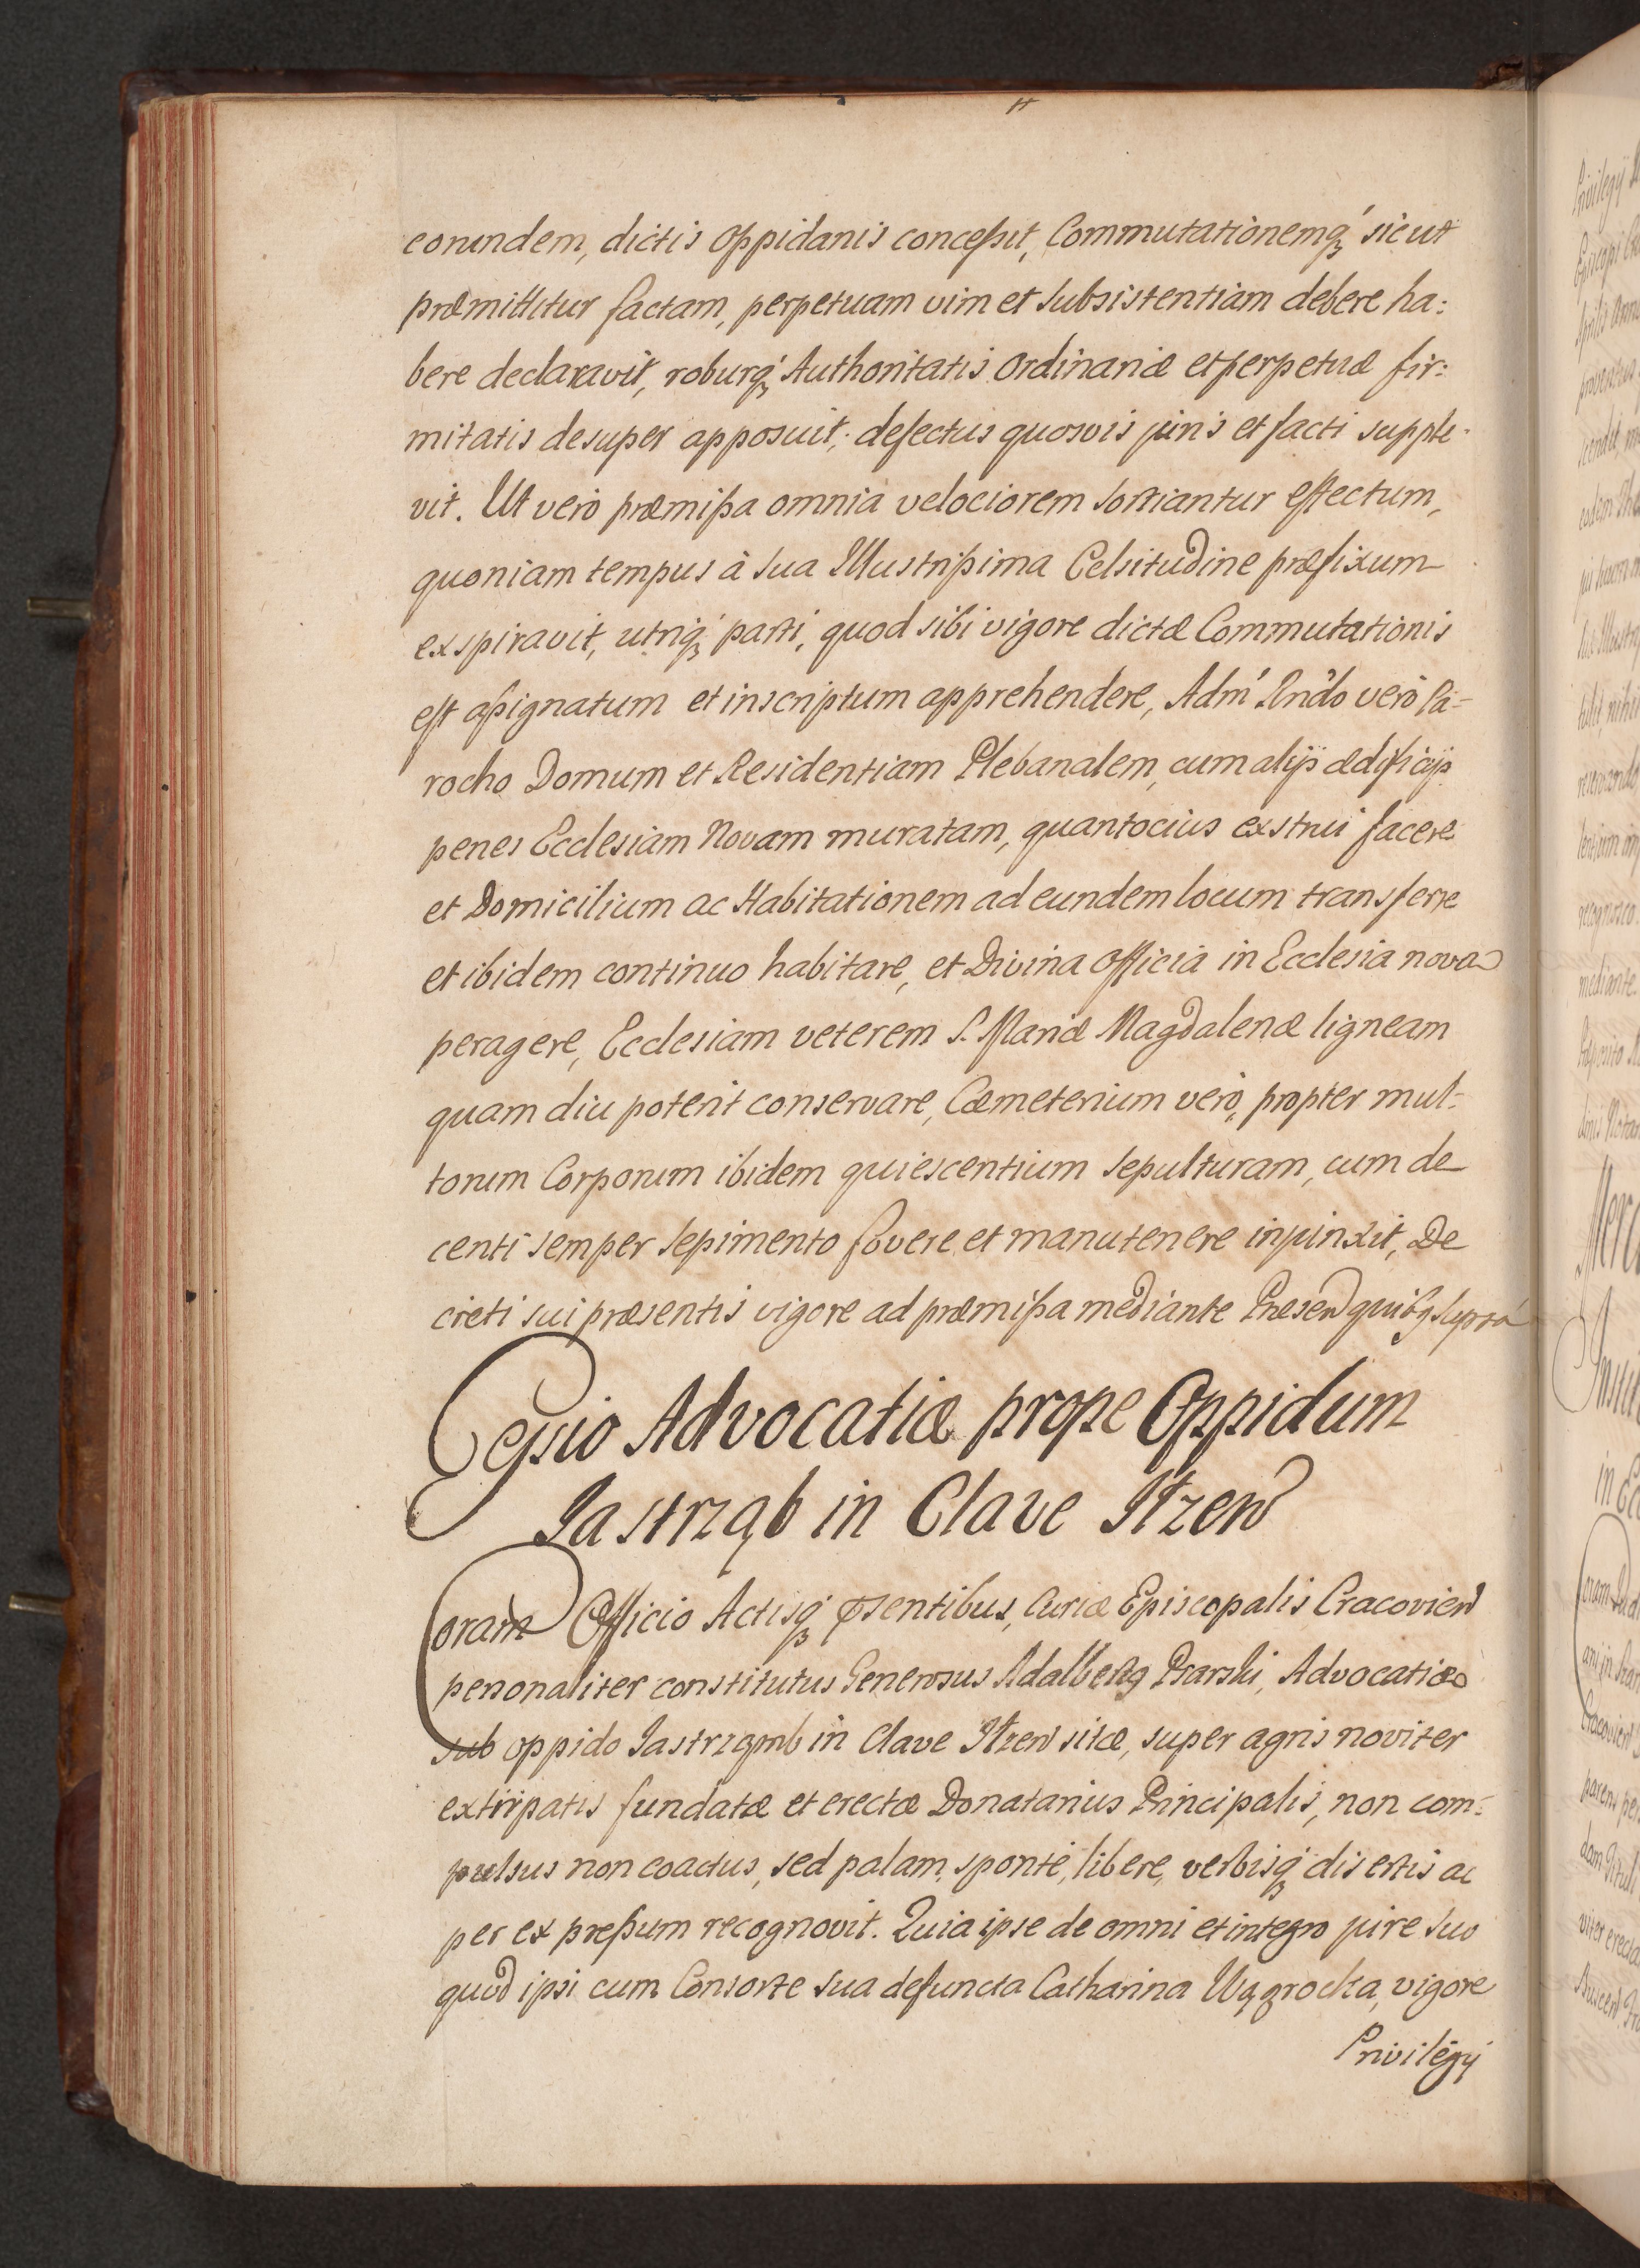 eorundem, dictis Oppidanis concessit, Commutationemq́ꝫ sicut
præmittitur factam, perpetuam vim et subsistentiam debere ha:
bere declaravit, roburq́ꝫ Authoritatis Ordinariæ et perpetuæ fir:
mitatis desuper apposuit; defectus quosvis juris et facti supple-
vit. Ut vero præmissa omnia velociorem sortiantur effectum,
quoniam tempus à Sua Illustrissima Celsitudine præfixum
exspiravit, utriq́ꝫ parti, quod sibi vigore dictæ Commutationis
est assignatum et inscriptum apprehendere, Adm̃ Rńdo verò Pa-
rocho Domum et Residentiam Plebanalem, cum alijs ædificijs
penes Ecclesiam Novam muratam, quantocius exstrui facere
et Domicilium ac Habitationem ad eundem locum transferre
et ibidem continuo habitare, et Divina Officia in Ecclesia nova
peragere, Ecclesiam veterem S. Mariæ Magdalenæ ligneam
quam diu poterit conservare, Cæmeterium verò, propter mul-
torum Corporum ibidem quiescentium sepulturam, cum de
centi semper sepimento fovere et manutenere injunxit, De
creti sui præsentis vigore ad præmissa mediante Præsen quibꝫ supra
Cessio Advocatiæ prope Oppidum
Jastrząb in Clave Ilzen
Coram Officio Actisq́ꝫ p̃sentibus, Curiæ Episcopalis Cracovien
personaliter constitutus Generosus Adalbertꝫ Psarski, Advocatiæ
sub oppido Jastrząmb in Clave Ilzen sitæ, super agris noviter
extirpatis fundatæ et erectæ Donatarius Principalis, non com:
pulsus non coactus, sed palam, sponte, libere, verbisq́ꝫ disertis ac
per expressum recognovit. Quia ipse de omni et integro jure suo
quod ipsi cum Consorte sua defuncta Catharina Wągrocka, vigore
Privilegÿ